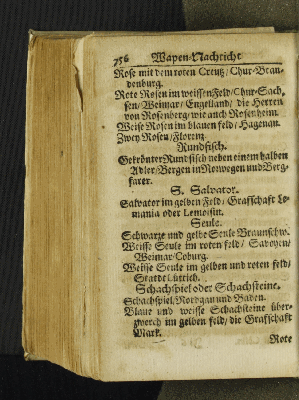 756 Wapen-Nachricht
Rose mit dem roten Creutz/ Chur-Bran-
denburg.
Rote Rosen im weissen Feld/ Chur-Sach-
sen/ Weimar/ Engelland/ die Herren
von Rosenberg/ wie auch Rosenheim.
Weise Rosen im blauen feld/ Hagenau.
Zwey Rosen/ Florenz.
Rundfisch.
Gekrönter Rundfisch neben einem halben
Adler/ Bergen in Norwegen und Berg-
farer.
S. Salvator.
Salvator im gelben Feld/ Grafschaft Le-
mania oder Lemosin.
Seule.
Schwarze und gelbe Seule Braunschw.
Weisse Seule im roten feld/ Savoyen/
Weimar/ Coburg.
Weisse Seule im gelben und roten feld/
Stadt Lüttich.
Schachspiel oder Schachsteine.
Schachspiel/ Nordgau und Baden.
Blaue und weisse Schachsteine über-
zwerch im gelben feld/ die Grafschafft
Mark.
Rote